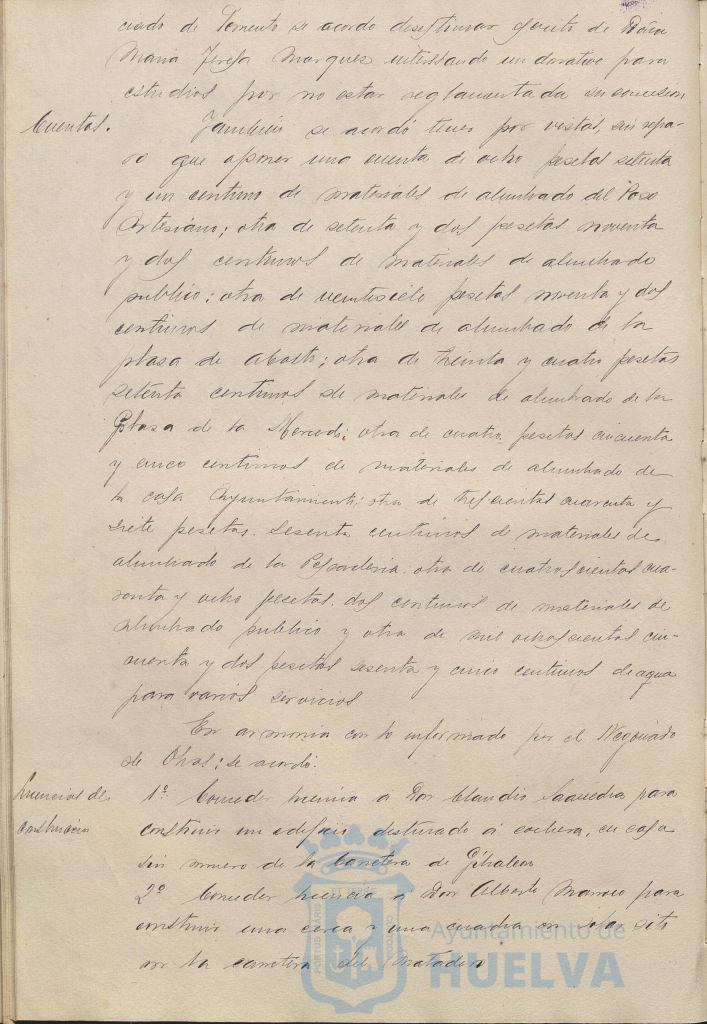 ciado de Fomento se acordo desestimar escrito de Doña
Maria Teresa Marquez interesando un donativo para
estudios por no estar reglamentada su concesion
Cuentas. Tambien se acordó tener por vistas, sin repa-
ro que oponer una cuenta de ocho pesetas setenta
y un centimo de materiales de alumbrado del Poso
Artesiano; otra de setenta y dos pesetas noventa
y dos centimos de materiales de alumbrado
publico; otra de veintisiete pesetas noventa y dos
centimos de materiales de alumbrado de la
plasa de Abasto; otra de treinta y cuatro pesetas
setenta centimos de materiales de alumbrado de la
Plasa de la Merced; otra de cuatro pesetas cincuenta
y cinco centimos de materiales de alumbrado de
la casa Ayuntamiento; otra de trescientas cuarenta y
siete pesetas. sesenta centimos de materiales de
alumbrado de la Pescaderia. otra de cuatroscientas cua-
renta y ocho pecetas. dos centimos de materiales de
alumbrado publico y otra de mil ochoscientas cin-
cuenta y dos pesetas sesenta y cinco centimos de agua
para varios servicios
En armonia con lo informado por el Negociado
de Obras; se acordó.
Licencias de
construccion
1º Conceder licencia á Don Claudio Saavedra para
construir un edificio destinado á cochera, en casa
sin numero de la Carretera de Gibraleon
2º Conceder licencia á Don Alberto Marroco para
construir una cerca y una cuadra en solar sito
en la carretera del Matadero
Ayuntamiento de
HUELVA